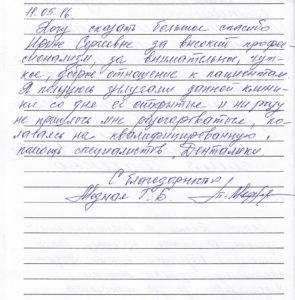 11.05.16
Хочу сказать большое спасибо
Ирине Сергеевне за высокий профес-
сионализм, за внимательное, чут-
кое, доброе отношение к пациентам.
Я пользуюсь услугами данной клини-
ки со дня её открытие и ни разу
не пришлось мне разочароваться, по-
лагаясь на квалифицированную
помощь специалистов „Денталики
С благодарностью
Г. Б.